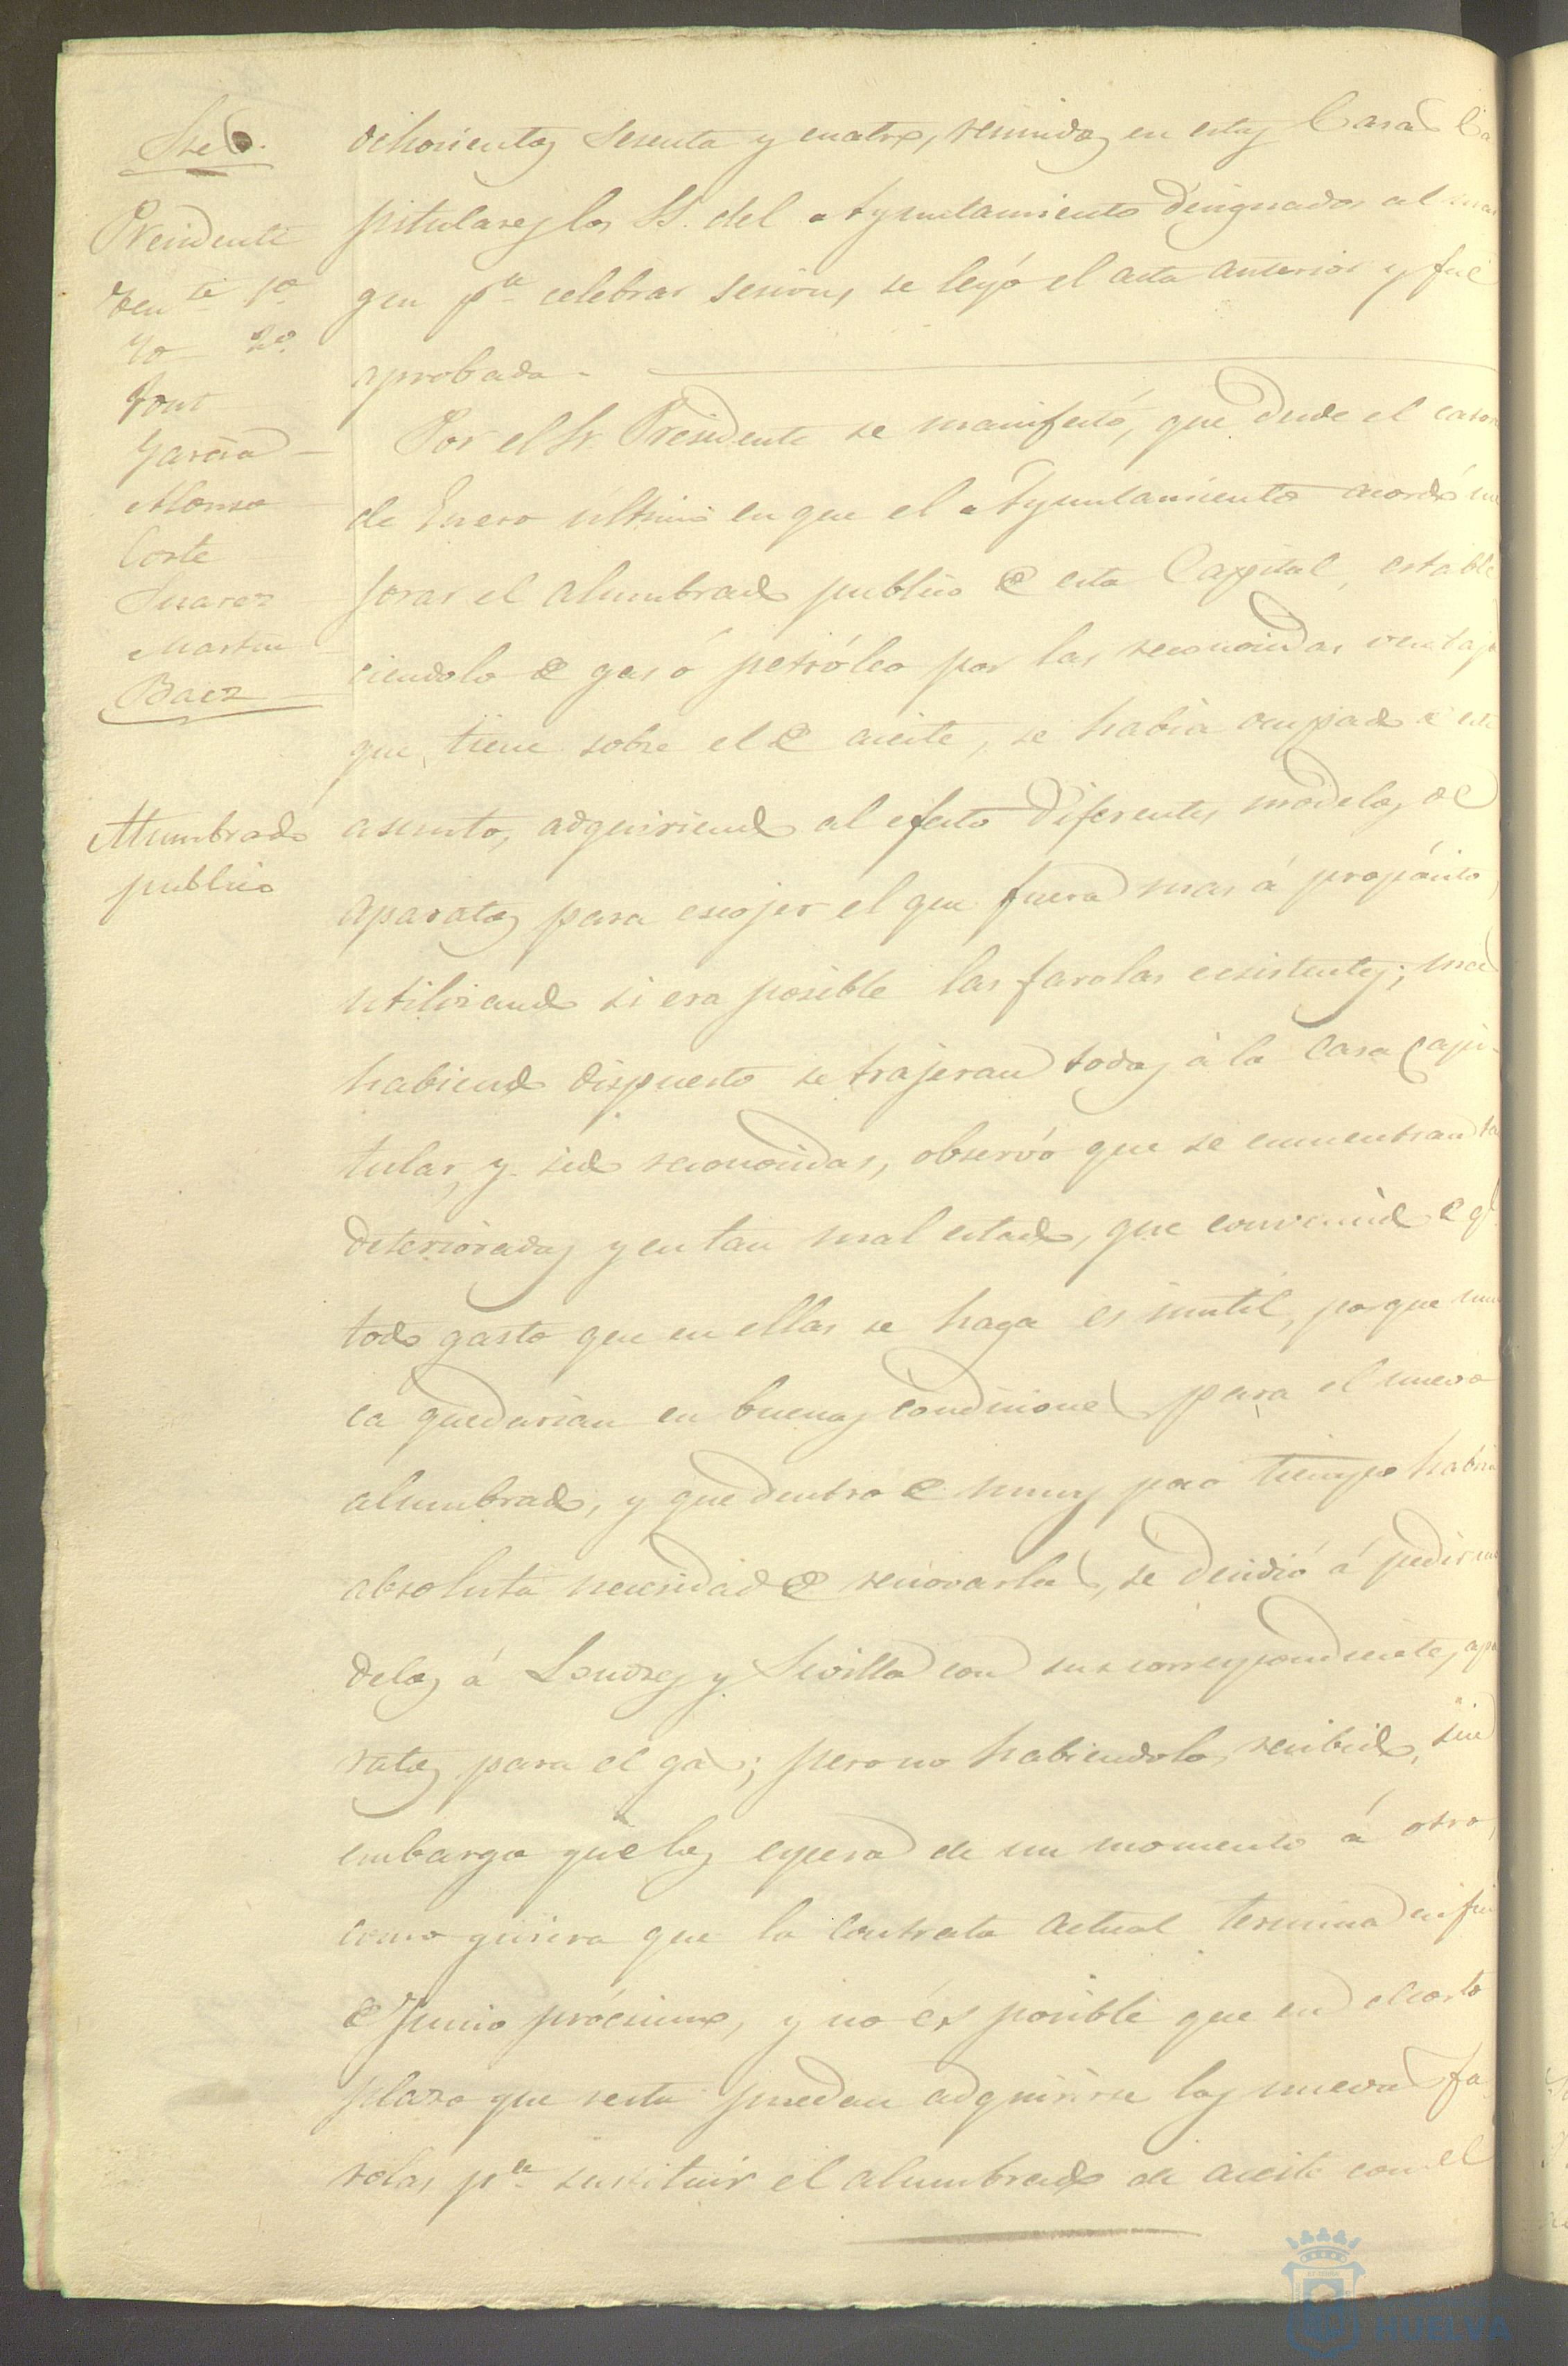 Sres.
Presidente
Ten.te 1º
Yd 2º
Font
Garcia
Alonso
Corte
Suarez
Martin
Baez
Alumbrado
publico
ochocientos sesenta y cuatro, reunidos en estas Casas Ca
pitulares los SS. del Ayuntamiento designados al mar
gen p.a celebrar sesion, se leyó el acta anterior y fué
aprobada.
Por el Sr. Presidente se manifestó, que desde el catorce
de Enero último en que el Ayuntamiento acordó me
jorar el alumbrado publico de esta Capital, estable
ciendolo de gas ó petróleo por las reconocidas ventajas
que tiene sobre el de aceite, se habia ocupado de este
asunto, adquiriendo al efecto diferentes modelos de
aparatos para escojer el que fuera mas á propósito,
utilizando si era posible las farolas ecsistentes; mas
habiendo dispuesto se trajeran todas á la Casa Capi-
tular, y sido reconocidas, observó que se encuentran tan
deterioradas y en tan mal estado, que convencido de q.e
todo gasto que en ellas se haga es inutil, porque nun
ca quedarian en buenas condiciones para el nuevo
alumbrado, y que dentro de muy poco tiempo habria
absoluta necesidad de renovarlas, se decidió á pedir mo
delos á Londres y Sevilla con sus correspondientes apa
ratos para el gas; pero no habiendolos recibido, sin
embargo que los espera de un momento á otro,
como quiera que la contrata actual termina en fin
de Junio prócsimo, y no és posible que en el corto
plazo que resta puedan adquirirse las nuevas fa
rolas p.a sustituir el alumbrado de aceite con el
HUELVA